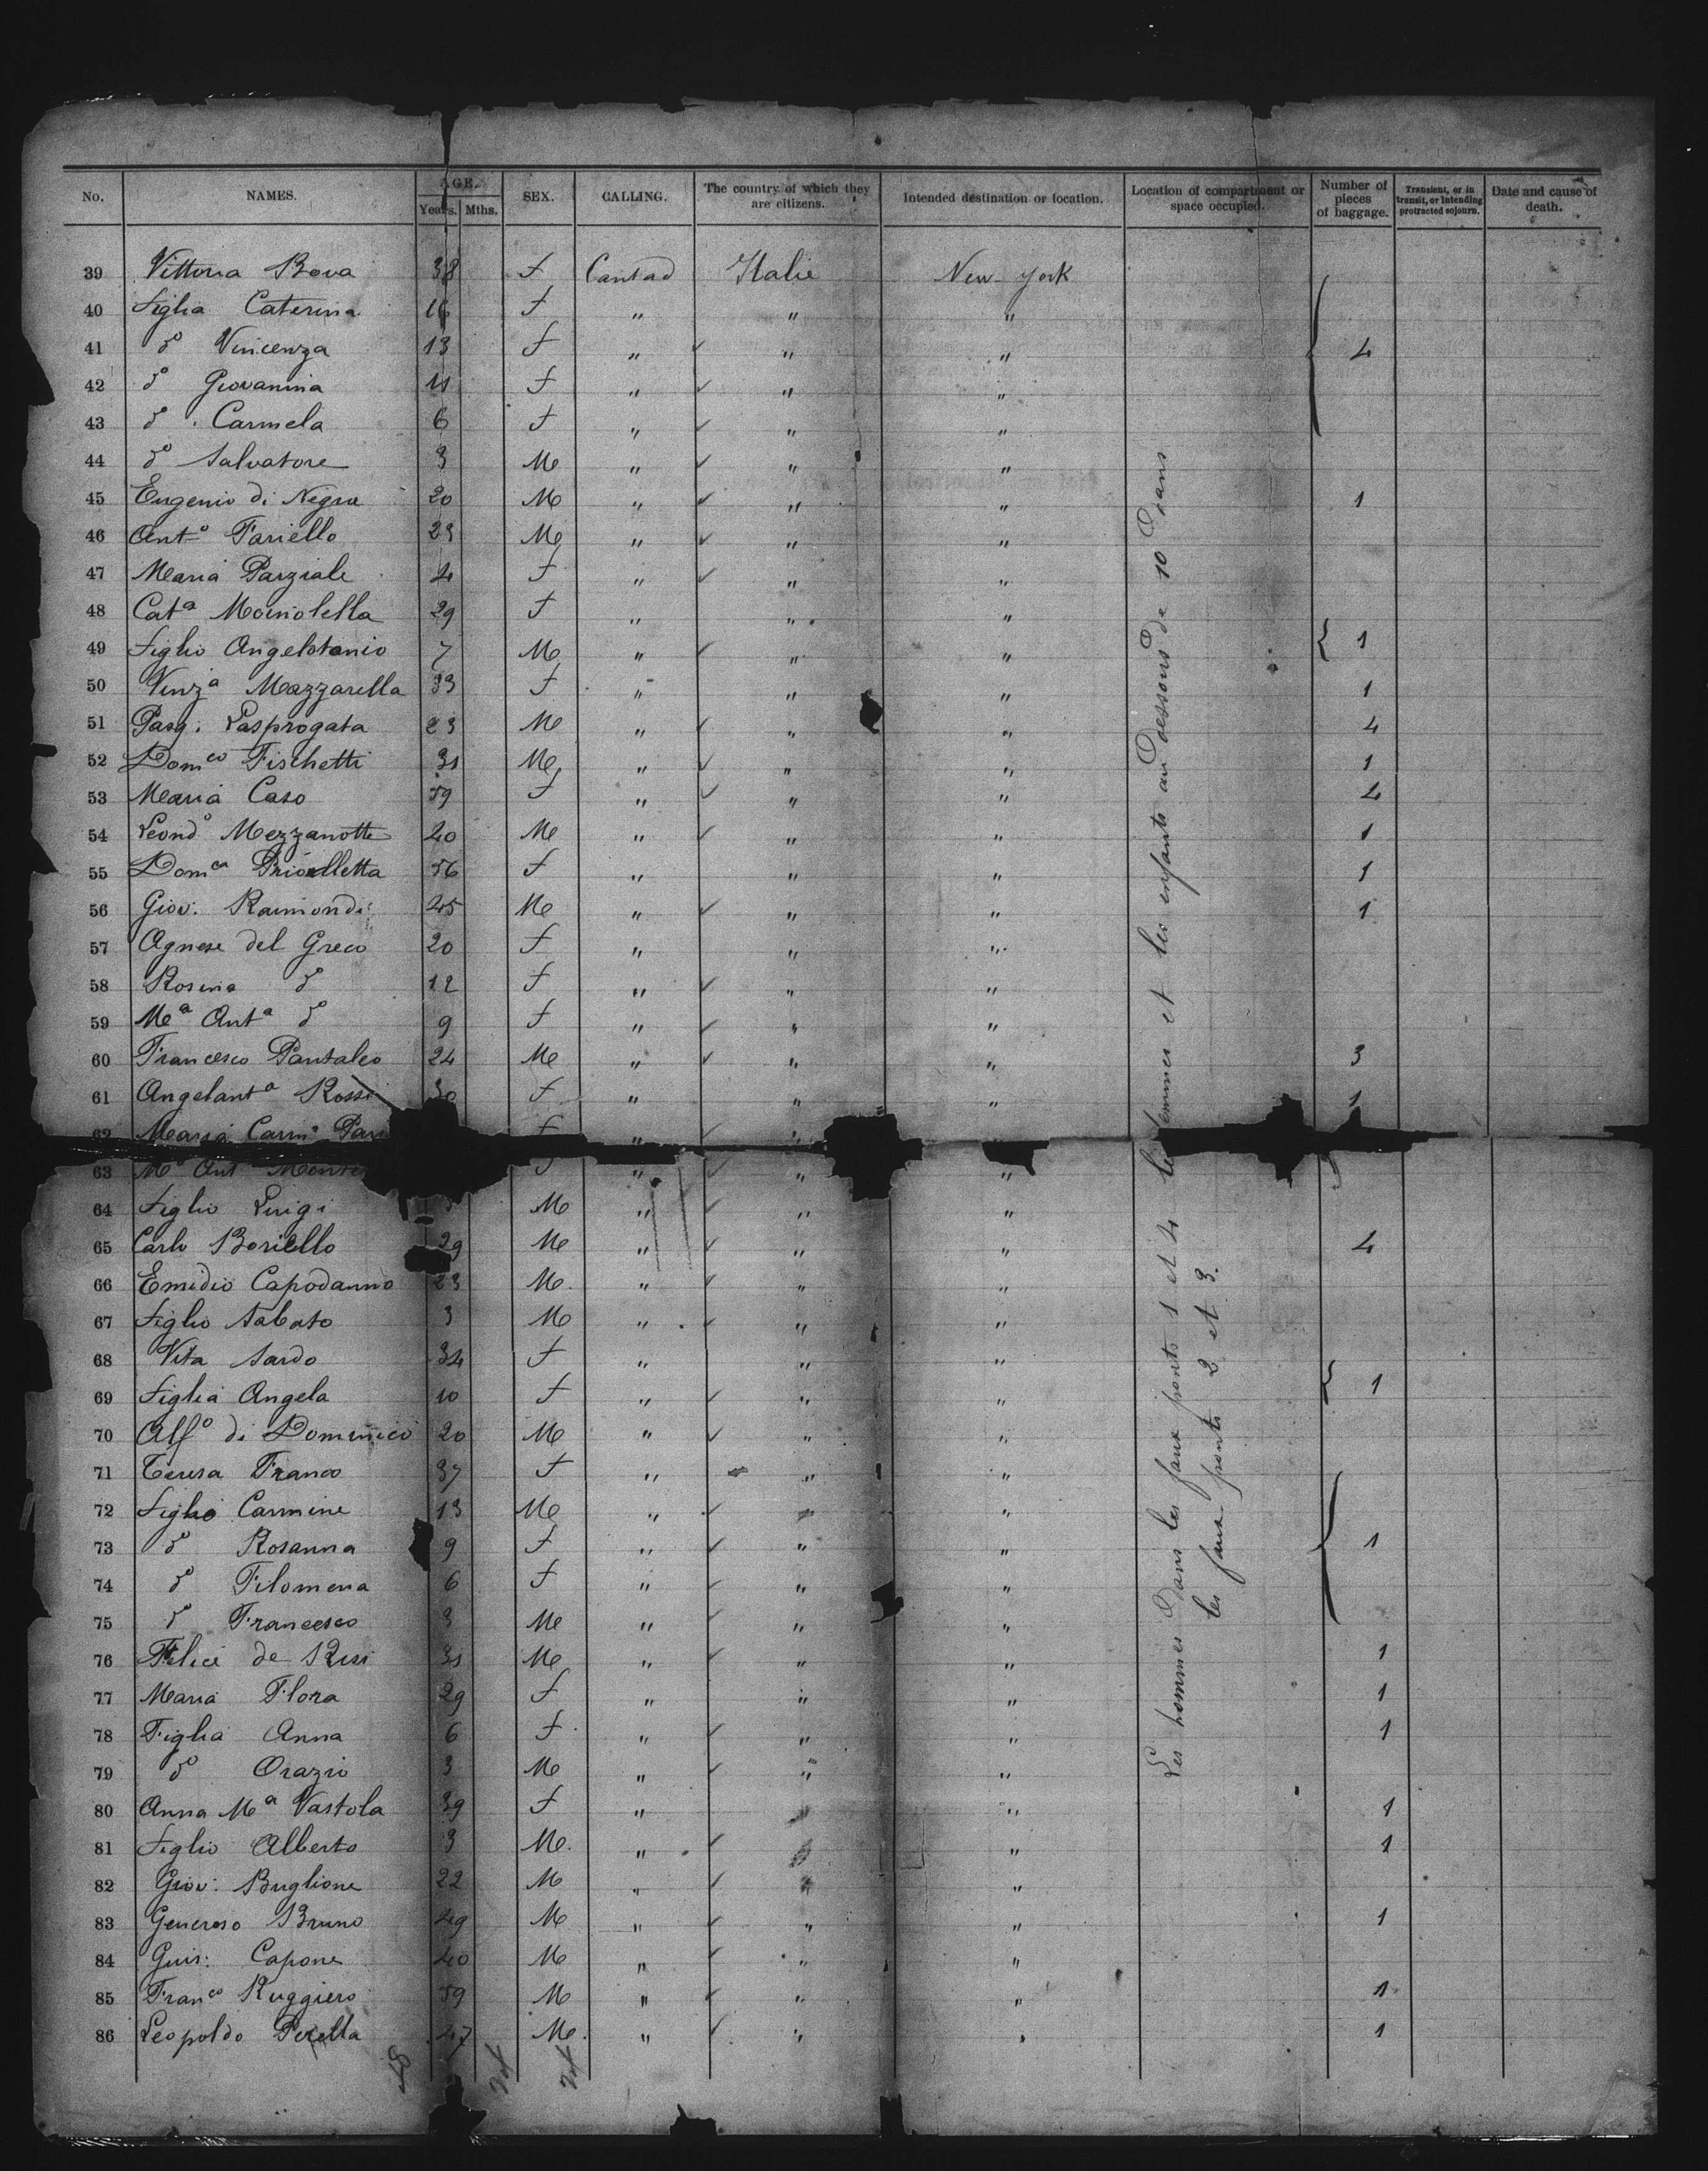 No. NAMES. AGE. SEX. CALLING. The country of which they are citizens. Intended destination or location. Location of compartment or space occupied. Number of pieces of baggage. Transient, or in transit, or intending protracted sojourn. Date and cause of death.
Years. Mths.
39 Vittoria Bova 38 f Contad Italie New-York
40 figlia Caterina 16 f " " "
41 do Vincenza 13 f " " " 4
42 do Giovannina 11 f " " "
43 do Carmela 6 f " " "
44 do Salvatore 3 M " " "
45 Eugenio di Negra 20 M " " " 1
46 Anto Fariello 23 M " " "
47 Maria Parziale 4 f " " "
48 Cata 29 f " " "
49 figlio Angelotonio 7 M " " " 1
50 Vinza Mazzarella 33 f " " " 1
51 Pasq. Lasprogata 23 M " " " 4
52 Domco Fischetti 31 M " " " 1
53 Maria Caso 59 f " " " 4
54 Leondo Mezzanotte 20 M " " " 1
55 Domca 56 f " " " 1
56 Giov. Raimondi 45 M " " " 1
57 Agnese del Greco 20 f " " "
58 Rosina do 12 f " " "
59 Ma Anta do 9 f " " "
60 Francesco Pantaleo 24 M " " " 3
61 Angelanta Rossi 30 f " " " 1
62 Maria Carma f " "
63 Ma Ant f " " "
64 figlio Luigi M " " "
65 Carlo Boriello 29 M " " " 4
66 Emidio Capodanno 23 M. " " "
67 figlio Sabato 3 M " " "
68 Vita Sardo 34 f " " "
69 figlia Angela 10 f " " " 1
70 Alfo di Dominici 20 M " " "
71 Teresa Franco 37 f " " "
72 figlio Carmine 13 M " " "
73 do Rosanna 9 f " " " 1
74 do Filomena 6 f " " "
75 do Francesco 3 M " " "
76 Felice de Risi 31 M " " " 1
77 Maria Flora 29 f " " " 1
78 Figlia Anna 6 f " " " 1
79 do Orazio 3 M " " "
80 Anna Ma Vastola 39 f " " 1
81 figlio Alberto 3 M. " " 1
82 Giov. Buglione 22 M " "
83 Generoso Bruno 49 M " " " 1
84 Guis: Capone 40 M " " "
85 Franco Ruggiero 59 M " " " 1
86 Leopoldo Perella 47 M. " " " 1
Les hommes dans les faux ponts 1 et 4 les femmes et les enfants au dessous de 10 dans
les faux ponts 2 et 3.